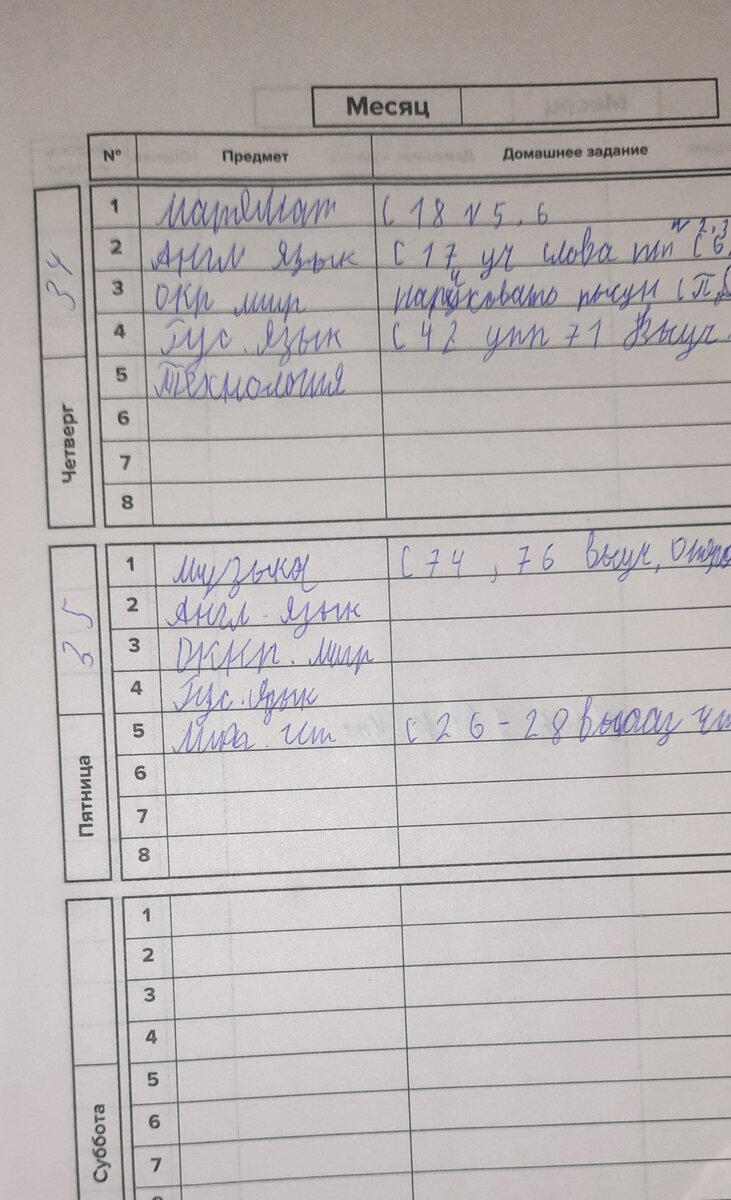 Месяц
№ Предмет Домашнее задание
34
Четверг
1 Математ С 18 N 5, 6
2 Англ язык С 17 уч слова тп С 6. N 2, 3
3 Окр мир нарисовать рисун
4 Рус. язык С 42 упп 71 Выуч.
5 Технология
6
7
8
35
Пятница
1 Музыка С 74, 76 выуч,
2 Англ. язык
3 мир
4 Рус. язык
5 чт С 26-28
6
7
8
Суббота
1
2
3
4
5
6
7